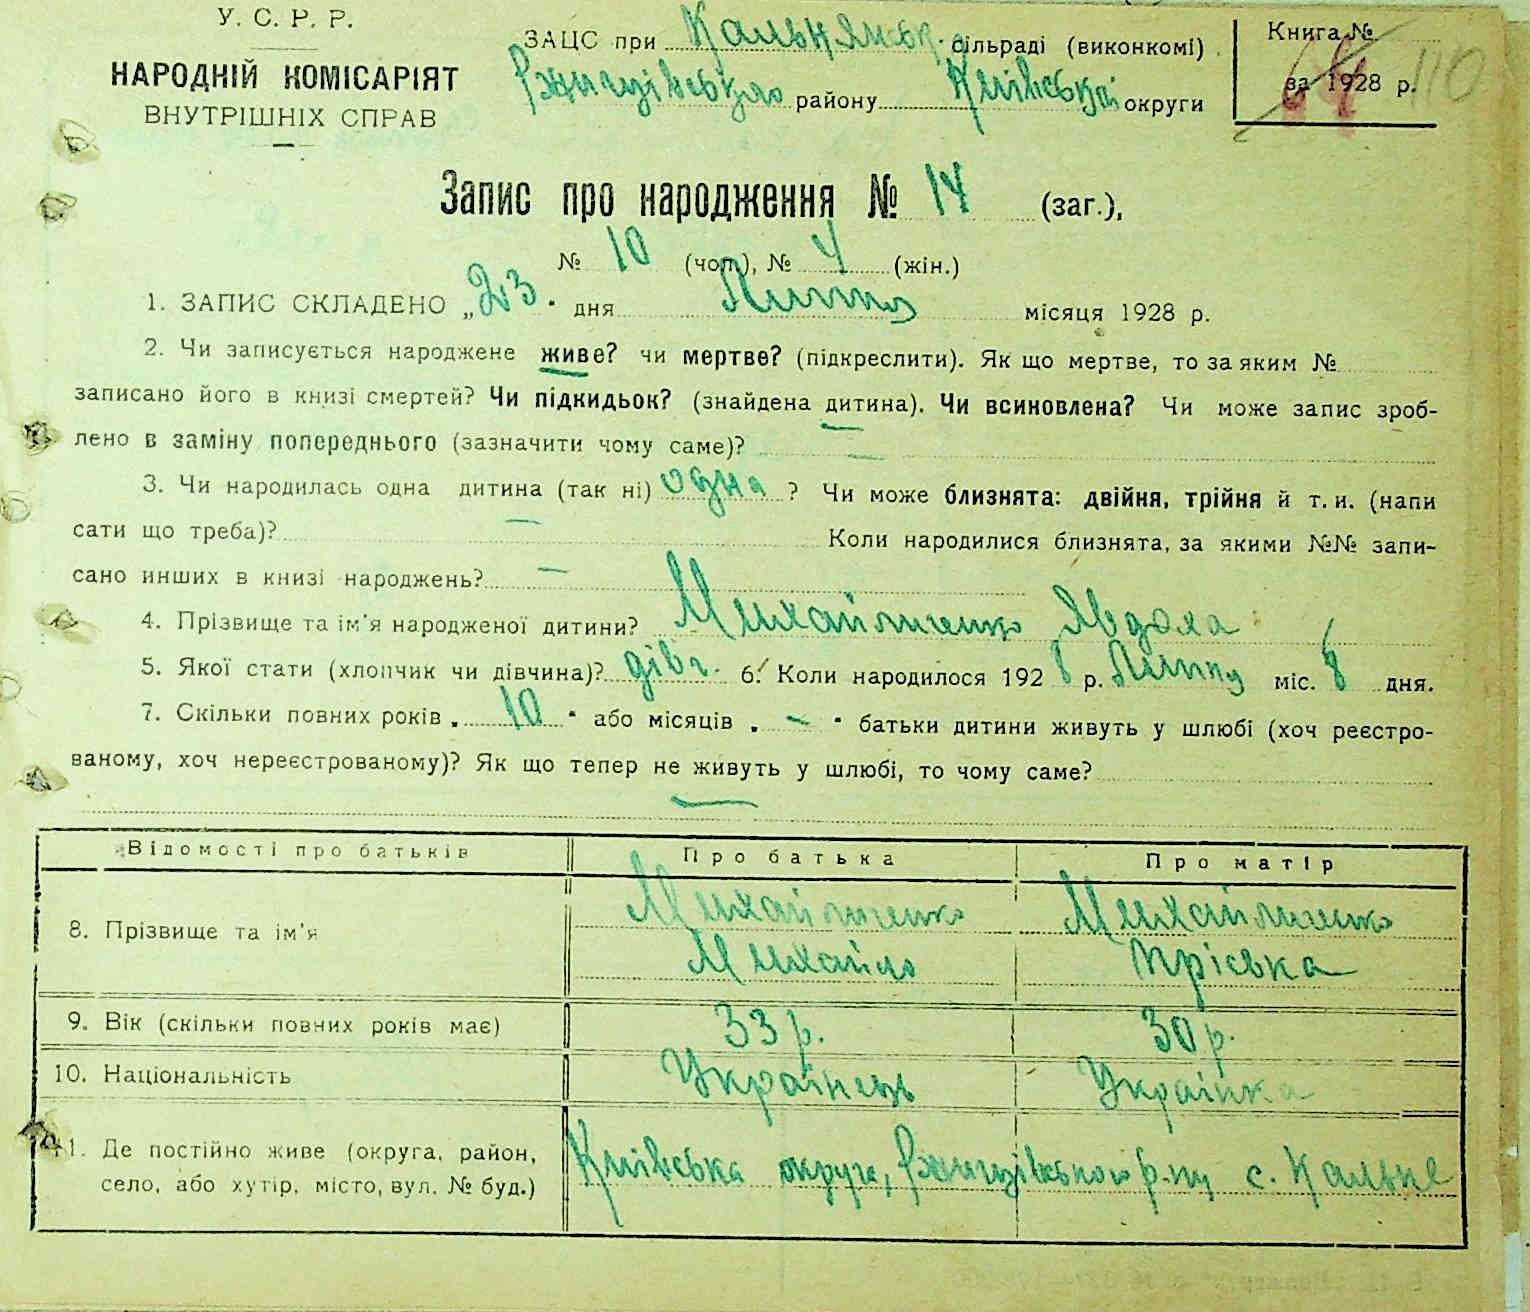 У. С. Р. Р.
НАРОДНІЙ КОМІСАРІЯТ
ВНУТРІШНІХ СПРАВ
ЗАЦС при Кальнянськ. сільраді (виконкомі)
Ржищівського району Київської округи
Книга №
за 1928 р. 110
Запис про народження № 14 (заг.),
№ 10 (чол.), № 4 (жін.)
1. ЗАПИС СКЛАДЕНО „23" дня Липня місяця 1928 р.
2. Чи записується народжене живе? чи мертве? (підкреслити). Як що мертве, то за яким №
записано його в книзі смертей? Чи підкидьок? (знайдена дитина). Чи всиновлена? Чи може запис зроб-
лено в заміну попереднього (зазначити чому саме)? —
3. Чи народилась одна дитина (так ні) одна ? Чи може близнята: двійня, трійня й т. и. (напи
сати що треба)? — Коли народилися близнята, за якими №№ запи-
сано инших в книзі народжень? —
4. Прізвище та ім'я народженої дитини? Михайличенко Явдоха
5. Якої стати (хлопчик чи дівчина)? дівч. 6. Коли народилося 1928 р. Липня міс. 8 дня.
7. Скільки повних років „ 10 " або місяців „ — " батьки дитини живуть у шлюбі (хоч реєстро-
ваному, хоч нереєстрованому)? Як що тепер не живуть у шлюбі, то чому саме?
—
Відомості про батьків Про батька Про матір
8. Прізвище та ім'я Михайличенко Михайличенко
Михайло Прісвка
9. Вік (скільки повних років має) 33 р. 30 р.
10. Національність Українець Українка
11. Де постійно живе (округа, район, село, або хутір, місто, вул. № буд.) Київська округа, Ржищівського р-ну с. Кальне